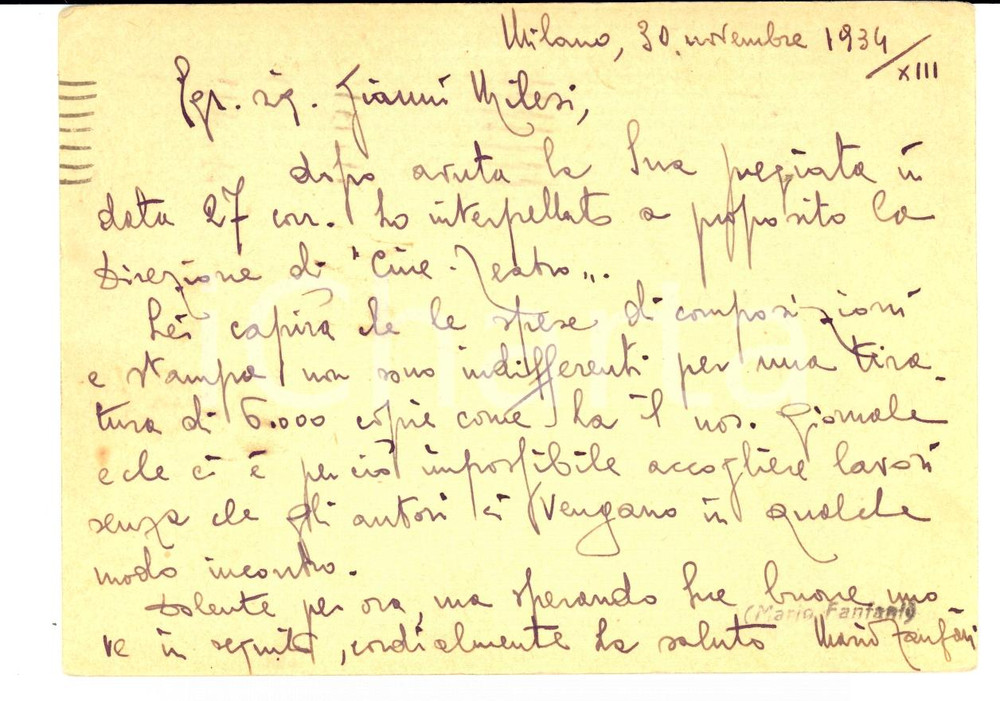 Milano, 30 novembre 1934/XIII
Egr. sig. Gianni Milesi,
dopo avuta la Sua pregiata in
data 27 corr. ho interpellato a proposito la
Direzione di "Cine-Teatro„.
Lei capirà che le spese di composizioni
e stampa non sono indifferenti per una tira-
tura di 6.000 copie come ha il nos. giornale
e che ci è perciò impossibile accogliere lavori
senza che gli autori ci vengano in qualche
modo incontro.
Dolente per ora, ma sperando Sue buone nuo
ve in seguito, cordialmente La saluto Mario Fanfani
(Mario Fanfani)
iCharta